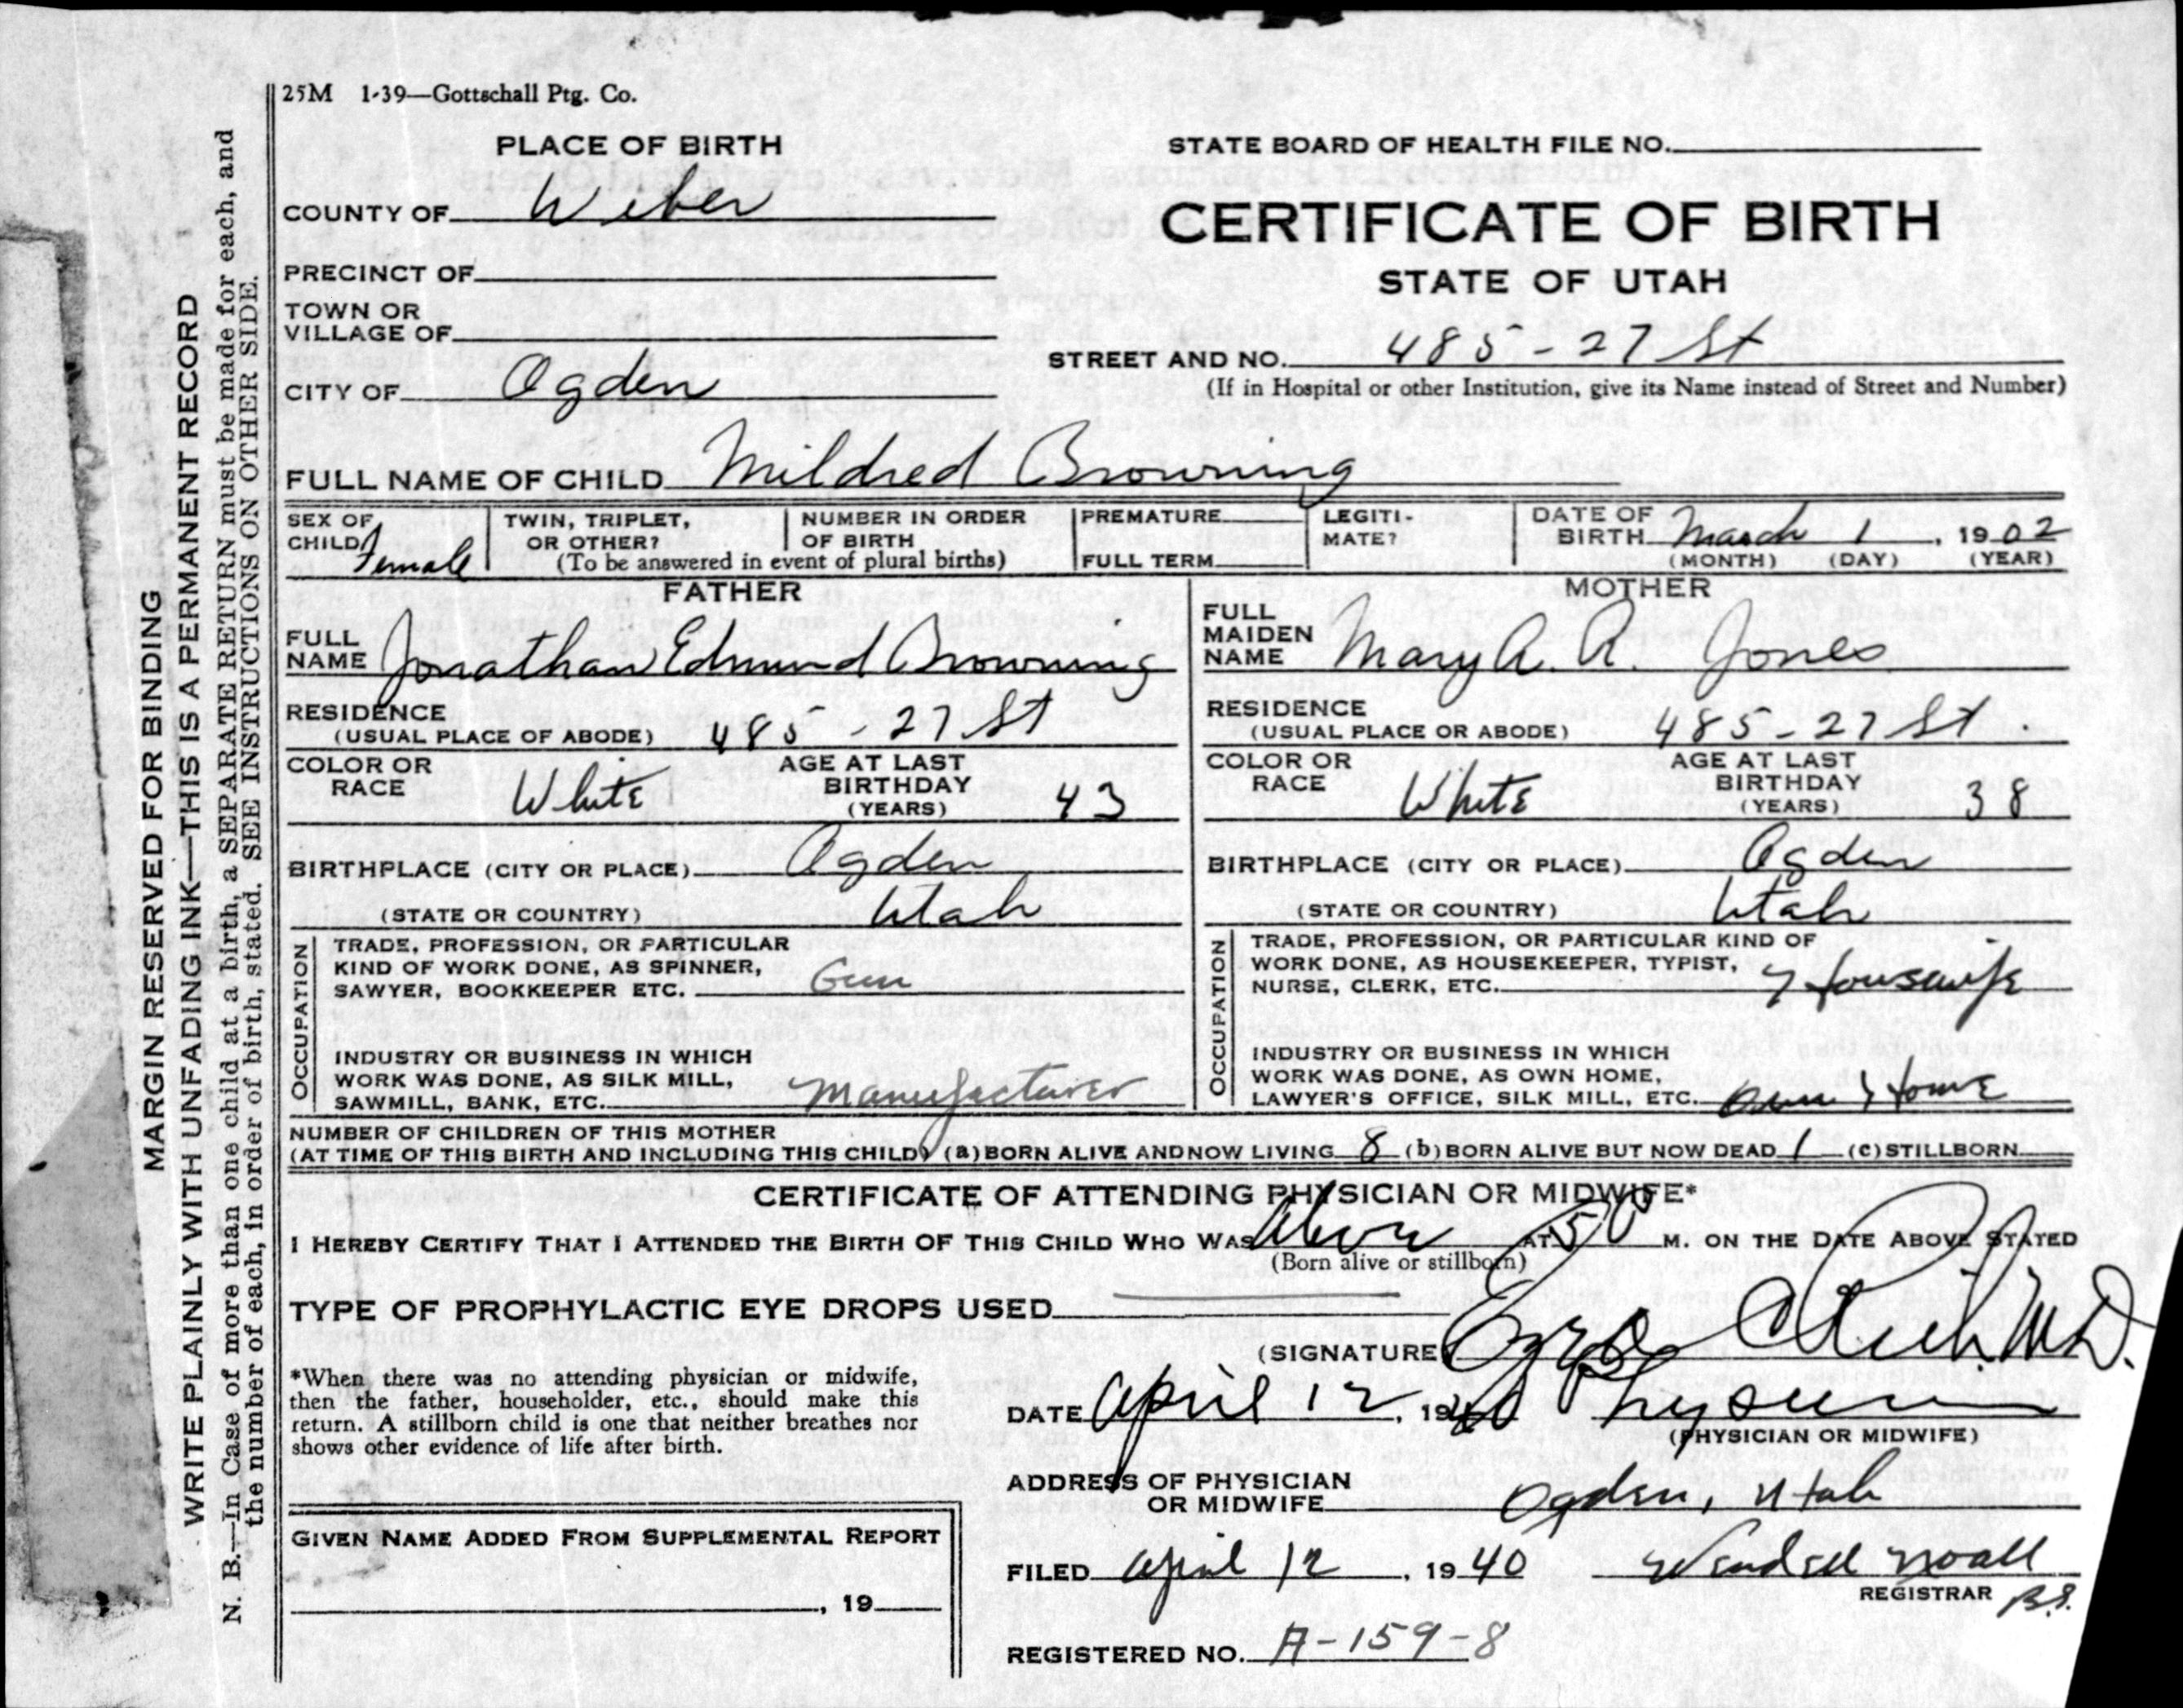 25M 1-39—Gottschall Ptg. Co.
PLACE OF BIRTH
STATE BOARD OF HEALTH FILE NO.
COUNTY OF Weber
CERTIFICATE OF BIRTH
PRECINCT OF
STATE OF UTAH
TOWN OR
VILLAGE OF
STREET AND NO. 485 - 27 St
CITY OF Ogden
(If in Hospital or other Institution, give its Name instead of Street and Number)
FULL NAME OF CHILD Mildred Browning
SEX OF CHILD Female
TWIN, TRIPLET, OR OTHER?
NUMBER IN ORDER OF BIRTH
(To be answered in event of plural births)
PREMATURE
FULL TERM
LEGITI-MATE?
DATE OF BIRTH March 1, 1902
(MONTH) (DAY) (YEAR)
FATHER
FULL NAME Jonathan Edmund Browning
RESIDENCE
(USUAL PLACE OF ABODE) 485 - 27 St
COLOR OR RACE White
AGE AT LAST BIRTHDAY (YEARS) 43
BIRTHPLACE (CITY OR PLACE) Ogden
(STATE OR COUNTRY) Utah
OCCUPATION
TRADE, PROFESSION, OR PARTICULAR
KIND OF WORK DONE, AS SPINNER,
SAWYER, BOOKKEEPER ETC. Gun
INDUSTRY OR BUSINESS IN WHICH
WORK WAS DONE, AS SILK MILL,
SAWMILL, BANK, ETC. Manufacturer
MOTHER
FULL MAIDEN NAME Mary A. R. Jones
RESIDENCE
(USUAL PLACE OR ABODE) 485 - 27 St.
COLOR OR RACE White
AGE AT LAST BIRTHDAY (YEARS) 38
BIRTHPLACE (CITY OR PLACE) Ogden
(STATE OR COUNTRY) Utah
OCCUPATION
TRADE, PROFESSION, OR PARTICULAR KIND OF
WORK DONE, AS HOUSEKEEPER, TYPIST,
NURSE, CLERK, ETC. Housewife
INDUSTRY OR BUSINESS IN WHICH
WORK WAS DONE, AS OWN HOME,
LAWYER'S OFFICE, SILK MILL, ETC. Own Home
NUMBER OF CHILDREN OF THIS MOTHER
(AT TIME OF THIS BIRTH AND INCLUDING THIS CHILD) (a) BORN ALIVE AND NOW LIVING 8 (b) BORN ALIVE BUT NOW DEAD 1 (c) STILLBORN
CERTIFICATE OF ATTENDING PHYSICIAN OR MIDWIFE*
I HEREBY CERTIFY THAT I ATTENDED THE BIRTH OF THIS CHILD WHO WAS AT M. ON THE DATE ABOVE STATED
(Born alive or stillborn)
TYPE OF PROPHYLACTIC EYE DROPS USED
(SIGNATURE) Ezra C Rich M.D.
*When there was no attending physician or midwife,
then the father, householder, etc., should make this
return. A stillborn child is one that neither breathes nor
shows other evidence of life after birth.
DATE April 12, 1940 Physician
(PHYSICIAN OR MIDWIFE)
ADDRESS OF PHYSICIAN
OR MIDWIFE Ogden, Utah
GIVEN NAME ADDED FROM SUPPLEMENTAL REPORT
, 19
FILED April 12, 1940 Wendell Noall
REGISTRAR B.S.
REGISTERED NO. A-159-8
MARGIN RESERVED FOR BINDING
WRITE PLAINLY WITH UNFADING INK—THIS IS A PERMANENT RECORD
N. B.—In Case of more than one child at a birth, a SEPARATE RETURN must be made for each, and
the number of each, in order of birth, stated. SEE INSTRUCTIONS ON OTHER SIDE.